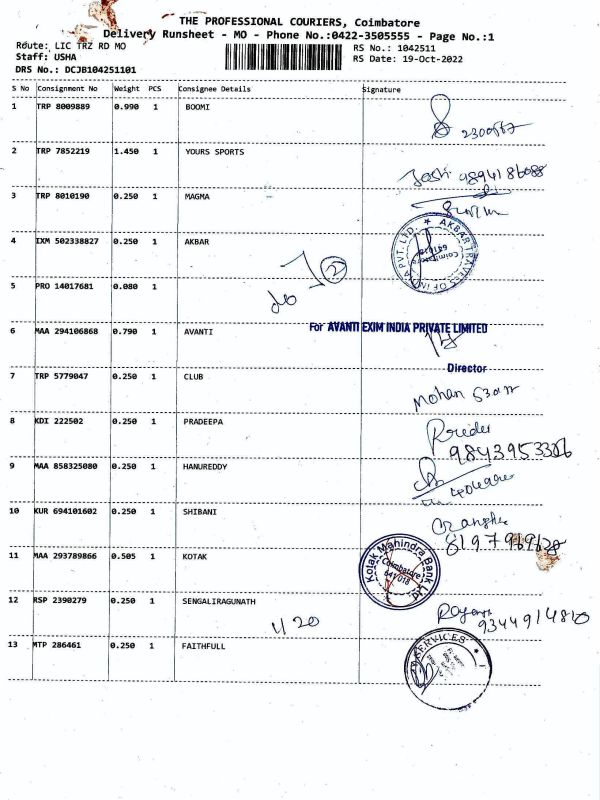 THE PROFESSIONAL COURIERS, Coimbatore
Delivery Runsheet - MO - Phone No.:0422-3505555 - Page No.:1
Route: LIC TRZ RD MO RS No.: 1042511
Staff: USHA RS Date: 19-Oct-2022
DRS No.: DCJB104251101
S No Consignment No Weight PCS Consignee Details Signature
1 TRP 8009889 0.990 1 BOOMI
2 TRP 7852219 1.450 1 YOURS SPORTS
9894186088
3 TRP 8010190 0.250 1 MAGMA
AKBAR TRAVELS OF INDIA PVT. LTD.
Coimbatore
4 IXM 502338827 0.250 1 AKBAR
2
5 PRO 14017681 0.080 1
For AVANTI EXIM INDIA PRIVATE LIMITED
6 MAA 294106868 0.790 1 AVANTI
Director
7 TRP 5779047 0.250 1 CLUB
Mohan
8 KDI 222502 0.250 1 PRADEEPA
9 MAA 858325080 0.250 1 HANUREDDY
10 KUR 694101602 0.250 1 SHIBANI
11 MAA 293789866 0.505 1 KOTAK
Kotak Mahindra Bank Ltd
Coimbatore
641018
12 RSP 2390279 0.250 1 SENGALIRAGUNATH
13 MTP 286461 0.250 1 FAITHFULL
SERVICES